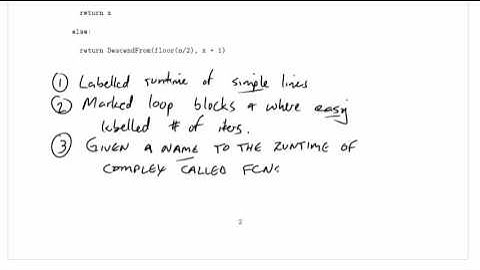 return x
else:
return DescendFrom(floor(n/2), x + 1)
① Labelled runtime of simple lines
② Marked loop blocks & where easy
labelled # of iters.
③ GIVEN A NAME TO THE RUNTIME OF
COMPLEX CALLED FCNS
2